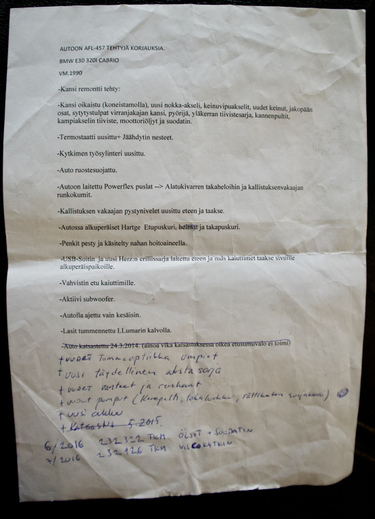 AUTOON AFL-457 TEHTYJÄ KORJAUKSIA.
BMW E30 320i CABRIO
VM.1990
-Kansi remontti tehty:
-Kansi oikaistu (koneistamolla), uusi nokka-akseli, keinuvipuakselit, uudet keinut, jakopään
osat, sytytystulpat virranjakajan kansi, pyörijä, yläkerran tiivistesarja, kannenpultit,
kampiakselin tiiviste, moottoriöljyt ja suodatin.
-Termostaatti uusittu+ Jäähdytin nesteet.
-Kytkimen työsylinteri uusittu.
-Auto ruostesuojattu.
-Autoon laitettu Powerflex puslat --> Alatukivarren takaheloihin ja kallistuksenvakaajan
runkokumit.
-Kallistuksen vakaajan pystynivelet uusittu eteen ja taakse.
-Autossa alkuperäiset Hartge Etupuskuri, helmat ja takapuskuri.
-Penkit pesty ja käsitelty nahan hoitoaineella.
-USB-Soitin ja uusi Hertzin erillissarja laitettu eteen ja taakse sivuille
alkuperäispaikoille.
-Vahvistin etu kaiuttimille.
-Aktiivi subwoofer.
-Autolla ajettu vain kesäisin.
-Lasit tummennettu LLumarin kalvolla.
-Auto katsastettu 24.3.2014. (ainoa vika katsastuksessa oikea etusumuvalo ei toimi)
+ uudet Tummaoptiikka umpiot
+ uusi täydellinen alusta sarja
+ uudet vanteet ja renkaat
+ uusi akku
+ Katsastus 5.2015
6/2016 232322 TKM ÖLJYT + SUODATIN
232426 TKM VISCOKYTKIN